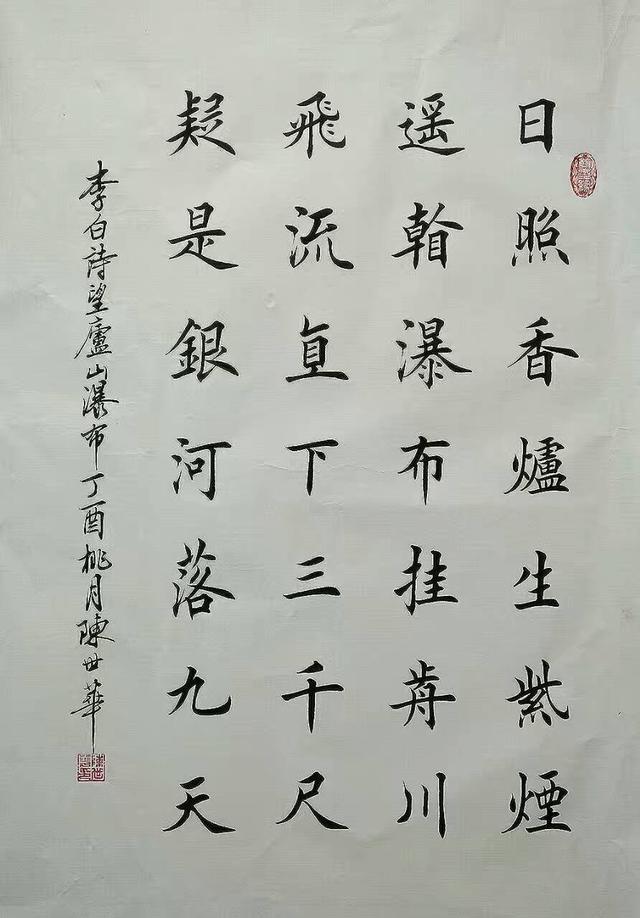 日照香爐生紫煙
遥看瀑布挂前川
飛流直下三千尺
疑是銀河落九天
李白詩望廬山瀑布丁酉桃月陳世華